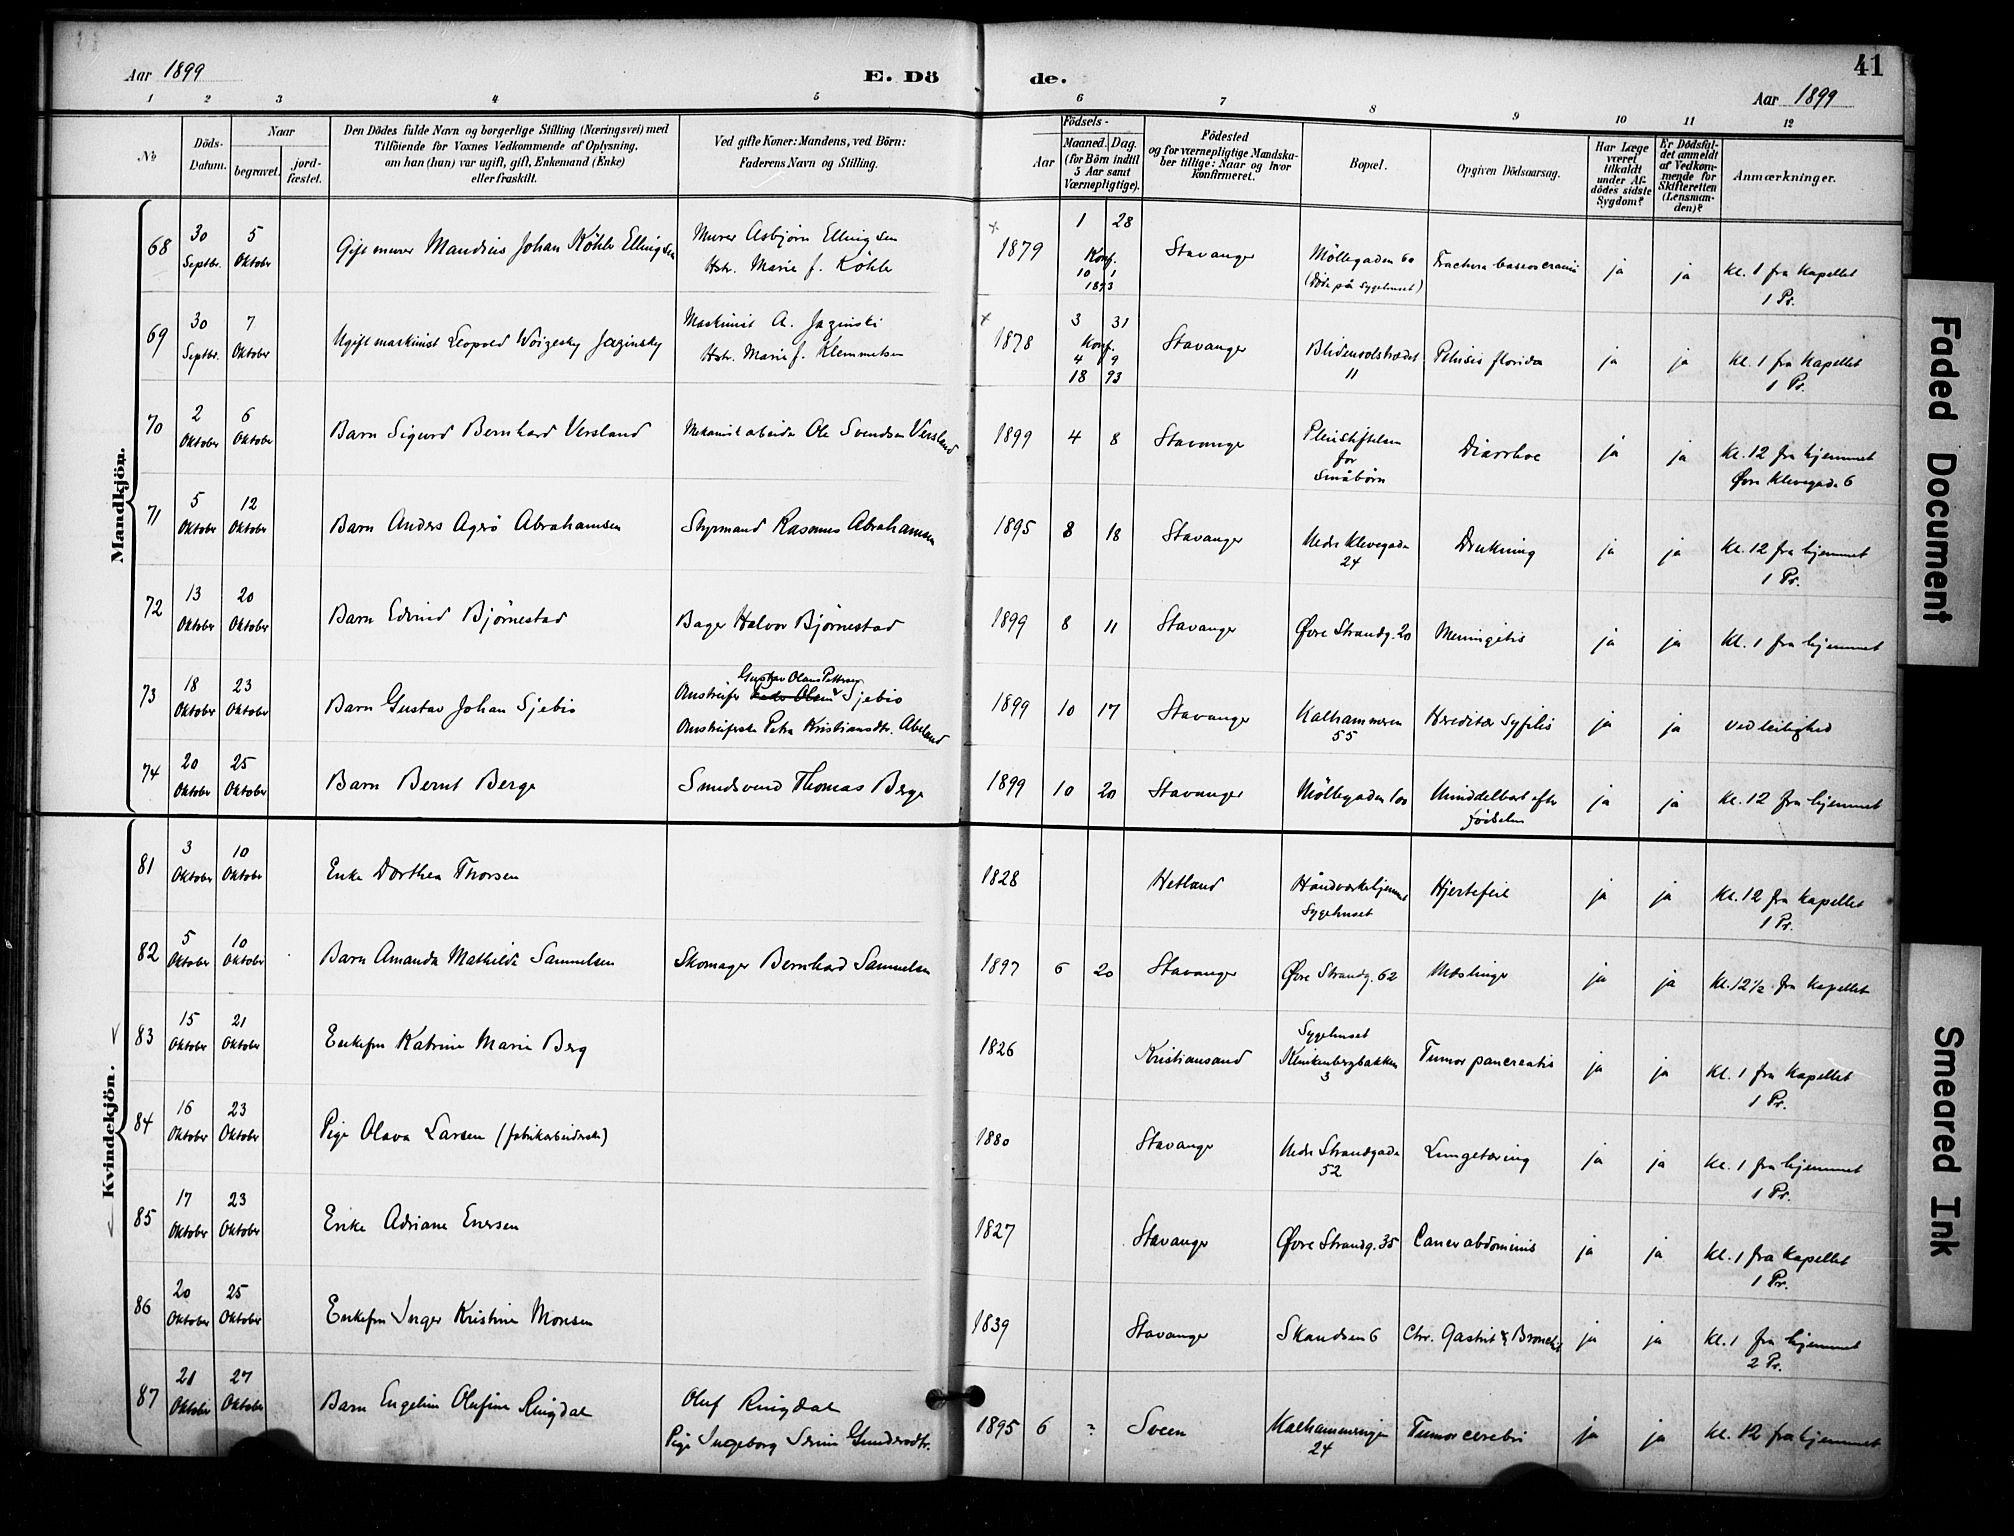 41
Aar 1899
E. Dö de.
Aar 1899
1 2 3 4 5 6 7 8 9 10 11 12
No
Döds-Datum.
Naar
begravet.
jord-fæstet.
Den Dödes fulde Navn og borgerlige Stilling (Næringsvei) med
Tilföiende for Voxnes Vedkommende af Oplysning,
om han (hun) var ugift, gift, Enkemand (Enke)
eller fraskilt.
Ved gifte Koner: Mandens, ved Börn:
Faderens Navn og Stilling.
Födsels-
Aar
Maaned. Dag.
(for Börn indtil
5 Aar samt
Værnepligtige).
Födested
og for værnepligtige Mandska-
ber tillige: Naar og hvor
Konfirmeret.
Bopæl.
Opgiven Dödsaarsag.
Har Læge
været
tilkaldt
under Af-
dödes sidste
Sygdom?
Er Dödsfal-
det anmeldt
af Vedkom-
mende for
Skifteretten
(Lensman-
den)?
Anmærkninger.
Mandkjön.
68 30 Septbr. 5 Oktober Gift murer Maudius Johan Köhler Ellingsen
Murer Asbjörn Ellingsen
Hstr. Marie f. Köhler
1879 1 28 Konf. 10 1 1893 Stavanger Möllegaden 60
(Döde på Sygehuset)
Fractura baseos cranii ja ja Kl. 1 fra Kapellet
1 Pr.
69 30 Septbr. 7 Oktober Ugift maskinist Leopold Woizesky Jazinsky
Maskinist A. Jazinski
Hstr. Marie f. Klemmetsen
1878 3 31 Konf. 4 9 18 93 Stavanger Blidensolstrædet
11
Pthisis florida ja ja Kl. 1 fra Kapellet
1 Pr.
70 2 Oktober 6 Oktober Barn Sigurd Bernhard Versland
Mekanisk arbeider Ole Svendsen Versland
1899 4 8 Stavanger Pleiestiftelsen
for
Småbörn
Diarrhoe ja ja Kl. 12 fra hjemmet
Øvre Klevegade 6
71 5 Oktober 12 Oktober Barn Anders Agerö Abrahamsen
Styrmand Rasmus Abrahamsen
1895 8 18 Stavanger Nedre Klevegade
24
Drukning ja ja Kl. 12 fra hjemmet
1 Pr.
72 13 Oktober 20 Oktober Barn Edvind Bjørnestad
Bager Halvor Bjørnestad
1899 8 11 Stavanger Øvre Strandg. 20 Meningitis ja ja Kl. 1 fra hjemmet
73 18 Oktober 23 Oktober Barn Gustav Johan Sjebio
Gustav Olaus Pettersen
Omstreifer Sjebio
Omstreiferske Petra Kristiansdtr. Abeland
1899 10 17 Stavanger Kalhammeren
55
Hereditær Syfilis ja ja ved leilighed
74 20 Oktober 25 Oktober Barn Bernt Berge
Smedsvend Thomas Berge
1899 10 20 Stavanger Möllegaden 100 Umiddelbart efter
Fødselen
ja ja Kl. 12 fra hjemmet
Kvindekjön.
81 3 Oktober 10 Oktober Enke Dorthea Thorsen
1828 Hetland Håndværkehjemmet
Sygehuset
Hjertefeil ja ja Kl. 12 fra Kapellet
1 Pr.
82 5 Oktober 10 Oktober Barn Amanda Mathilde Samuelsen
Skomager Bernhard Samuelsen
1897 6 20 Stavanger Øvre Strandg. 62 Mæslinger ja ja Kl. 12½ fra Kapellet
83 15 Oktober 21 Oktober Enkefru Katrine Marie Berg
1826 Kristiansand Sygehuset
Klinkenbergbakken
3
Tumor pancreatis ja ja Kl. 1 fra Kapellet
1 Pr.
84 16 Oktober 23 Oktober Pige Olava Larsen (fabrikarbeiderske)
1880 Stavanger Nedre Strandgade
52
Lungetæring ja ja Kl. 1 fra hjemmet
1 Pr.
85 17 Oktober 23 Oktober Enke Adriane Enersen
1827 Stavanger Øvre Strandg. 35 Cancer abdominis ja ja Kl. 1 fra Kapellet
1 Pr.
86 20 Oktober 25 Oktober Enkefru Inger Kristine Monsen
1839 Stavanger Skandsen 6 Chr. Gastrit & Bronchit ja ja Kl. 1 fra hjemmet
2 Pr.
87 21 Oktober 27 Oktober Barn Engeline Olufine Ringdal
Oluf Ringdal
Pige Ingeborg Serine Gundersdtr.
1895 6 ? Sveen Kalhammeringen
24
Tumor cerebri ja ja Kl. 12 fra hjemmet
Faded Document
Smeared Ink